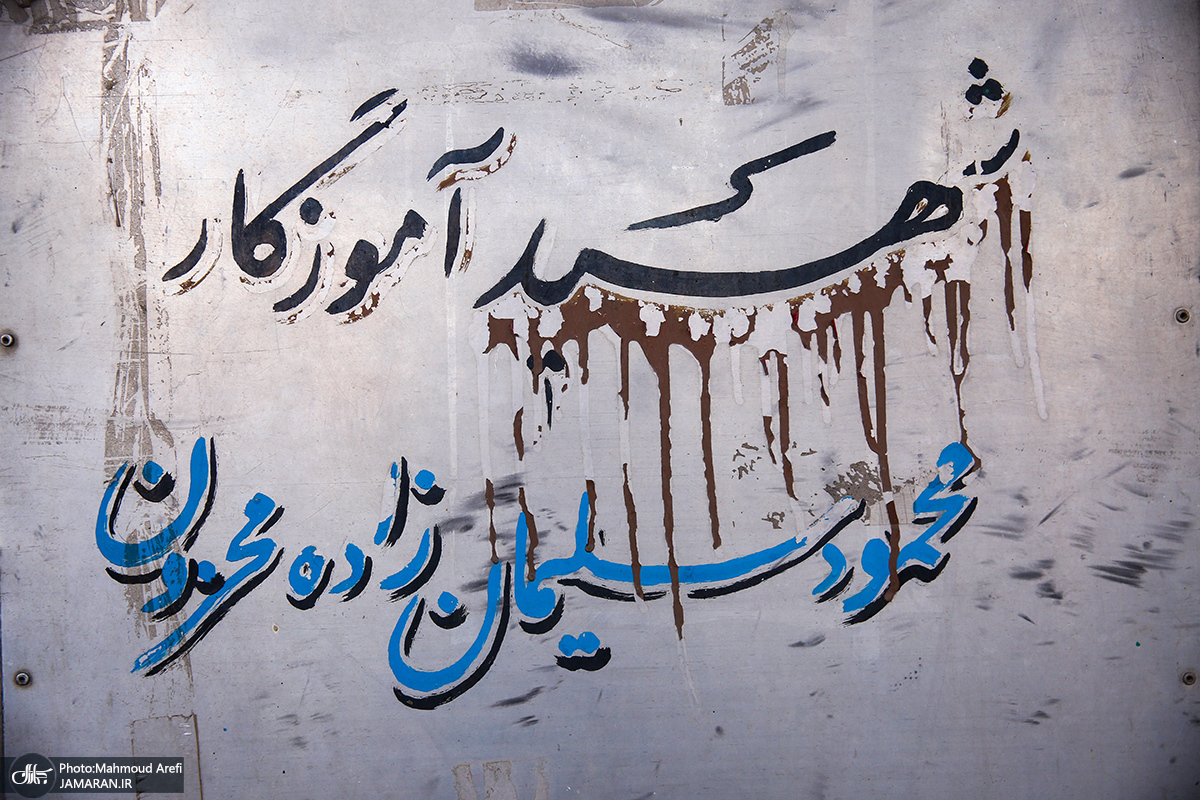 شهید آموزگار
محمود سلیمان زاده
Photo:Mahmoud Arefi
JAMARAN.IR